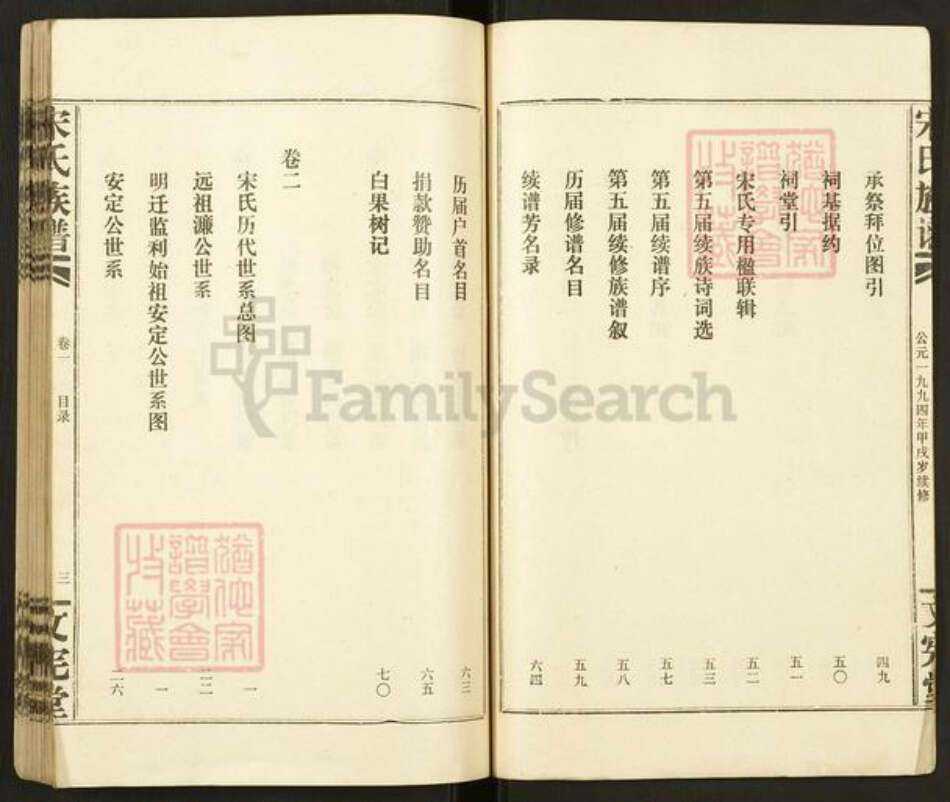 宋氏族谱
公元一九九四年甲戌岁续修
文宪堂
承祭拜位图引 四九
祠基据约 五〇
祠堂引 五一
宋氏专用楹联辑 五二
第五届续族诗词选 五三
第五届续谱序 五七
第五届续修族谱叙 五八
历届修谱名目 五九
续谱芳名录 六四
历届户首名目 六三
捐款赞助名目 六五
白果树记 七〇
卷二
宋氏历代世系总图 一
远祖濂公世系
明迁监利始祖安定公世系图 一
安定公世系 二六
宋氏族谱
卷一
目录
三
文宪堂
猶他家
譜學會
收藏
FamilySearch